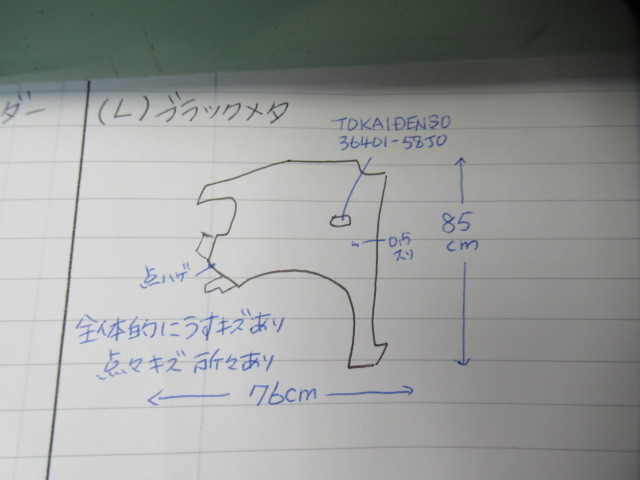 ダー
(L)ブラックメタ
TOKAIDENSO
36401-58J0
85
cm
0.5
スリ
点ハゲ
全体的にうすキズあり
点々キズ所々あり
76cm